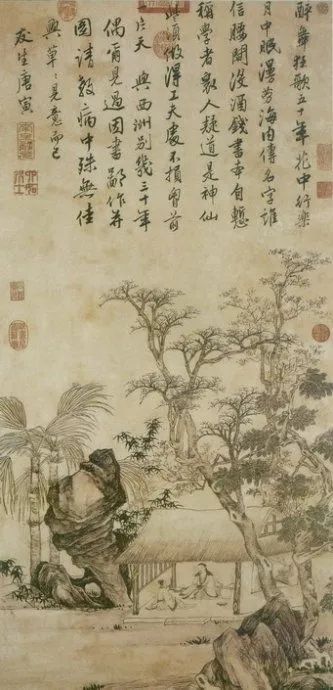 醉舞狂歌五十年花中行樂
月中眠漫勞海內傳名字誰
信腰間沒酒錢書本自慙
稱學者眾人疑道是神仙
些須做得工夫處不損胸前
一片天與西洲別幾三十年
偶爾見過因書鄙作并
圖請教病中殊無佳
興草〻見意而已
友生唐寅
南京解元
六如居士